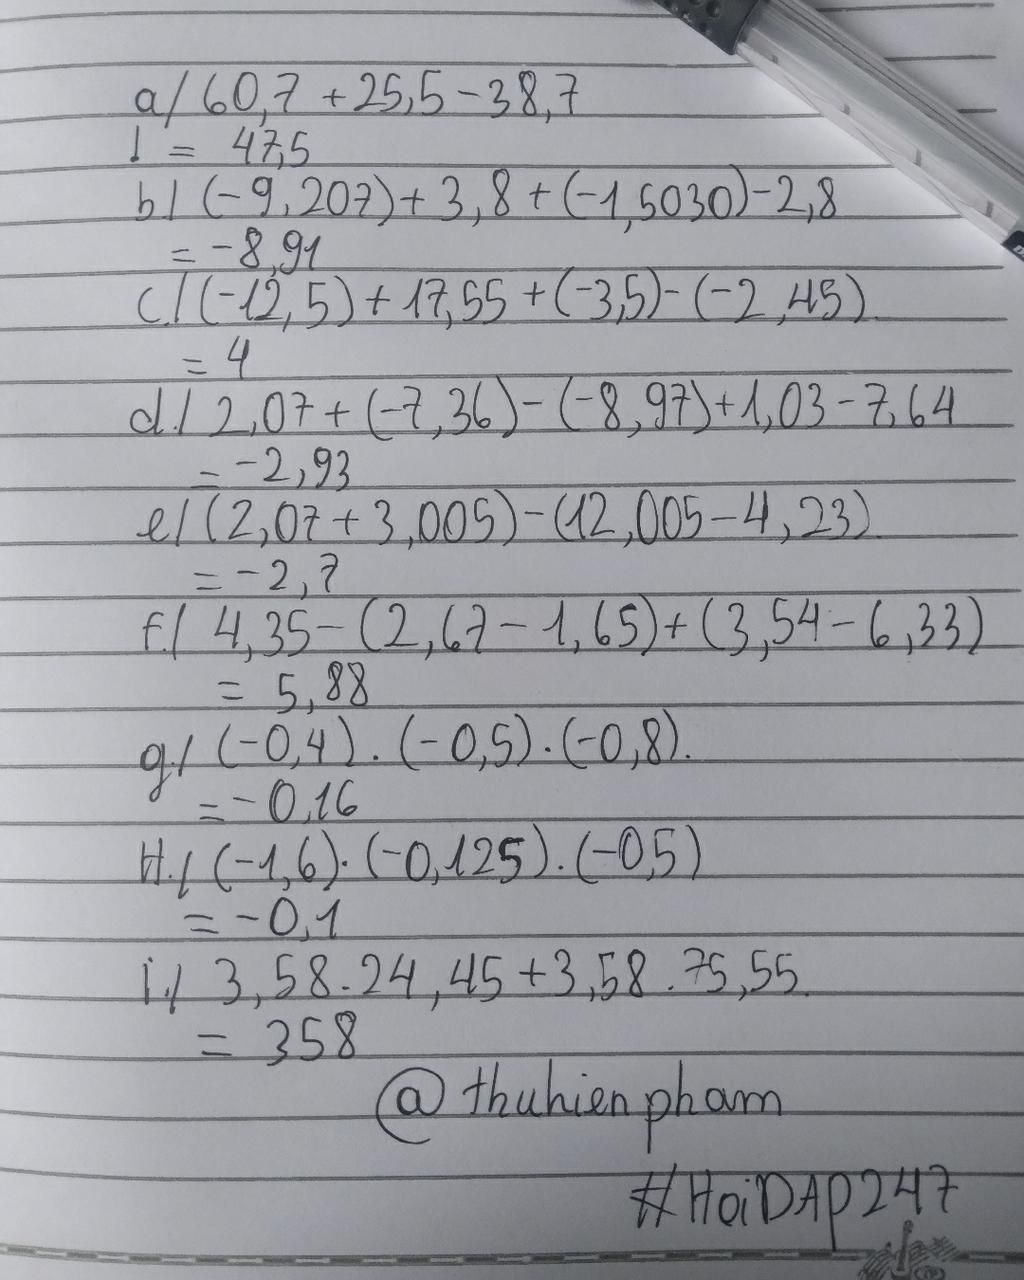 a/ 60,7 + 25,5 - 38,7
= 47,5
b/ (-9,207) + 3,8 + (-1,5030) - 2,8
= -8,91
c./ (-12,5) + 17,55 + (-3,5) - (-2,45)
= 4
d./ 2,07 + (-7,36) - (-8,97) + 1,03 - 7,64
= -2,93
e/ (2,07 + 3,005) - (12,005 - 4,23)
= -2,7
f./ 4,35 - (2,67 - 1,65) + (3,54 - 6,33)
= 5,88
g./ (-0,4) . (-0,5) . (-0,8).
= -0,16
H./ (-1,6) . (-0,125) . (-0,5)
= -0,1
i./ 3,58 . 24,45 + 3,58 . 75,55
= 358
@thuhienpham
#HoiDAP247